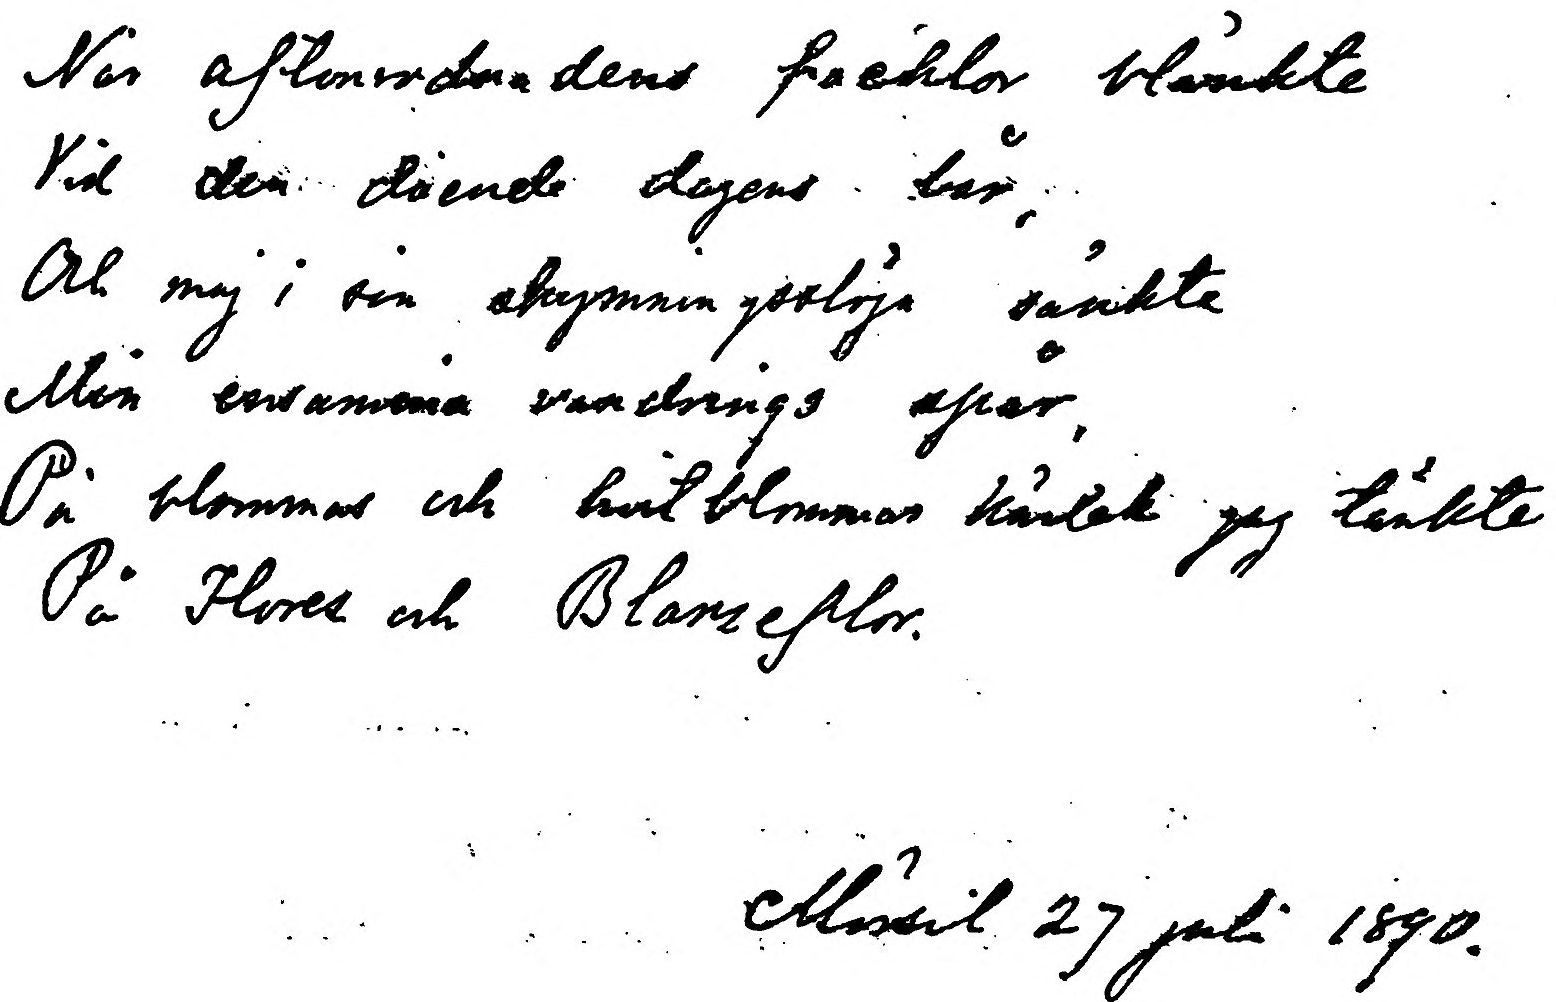 När aftonrodnadens facklor blänkte
Vid den döende dagens bår,
Och maj i sin skymningsslöja sänkte
Min ensamma vandrings spår,
På blommas och hvitblommas kärlek jag tänkte
På Flores och Blanzeflor.
Mörsil 27 juli 1890.